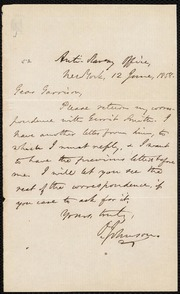 Anti-Slavery Office,
New York, 12 June, 1858.
Dear Garrison,
Please return my corres-
pondence with Gerrit Smith. I
have another letter from him, to
which I must reply, & I want
to have the previous letters before
me. I will let you see the
rest of the correspondence, if
you care to ask for it.
Yours, truly,
O. Johnson